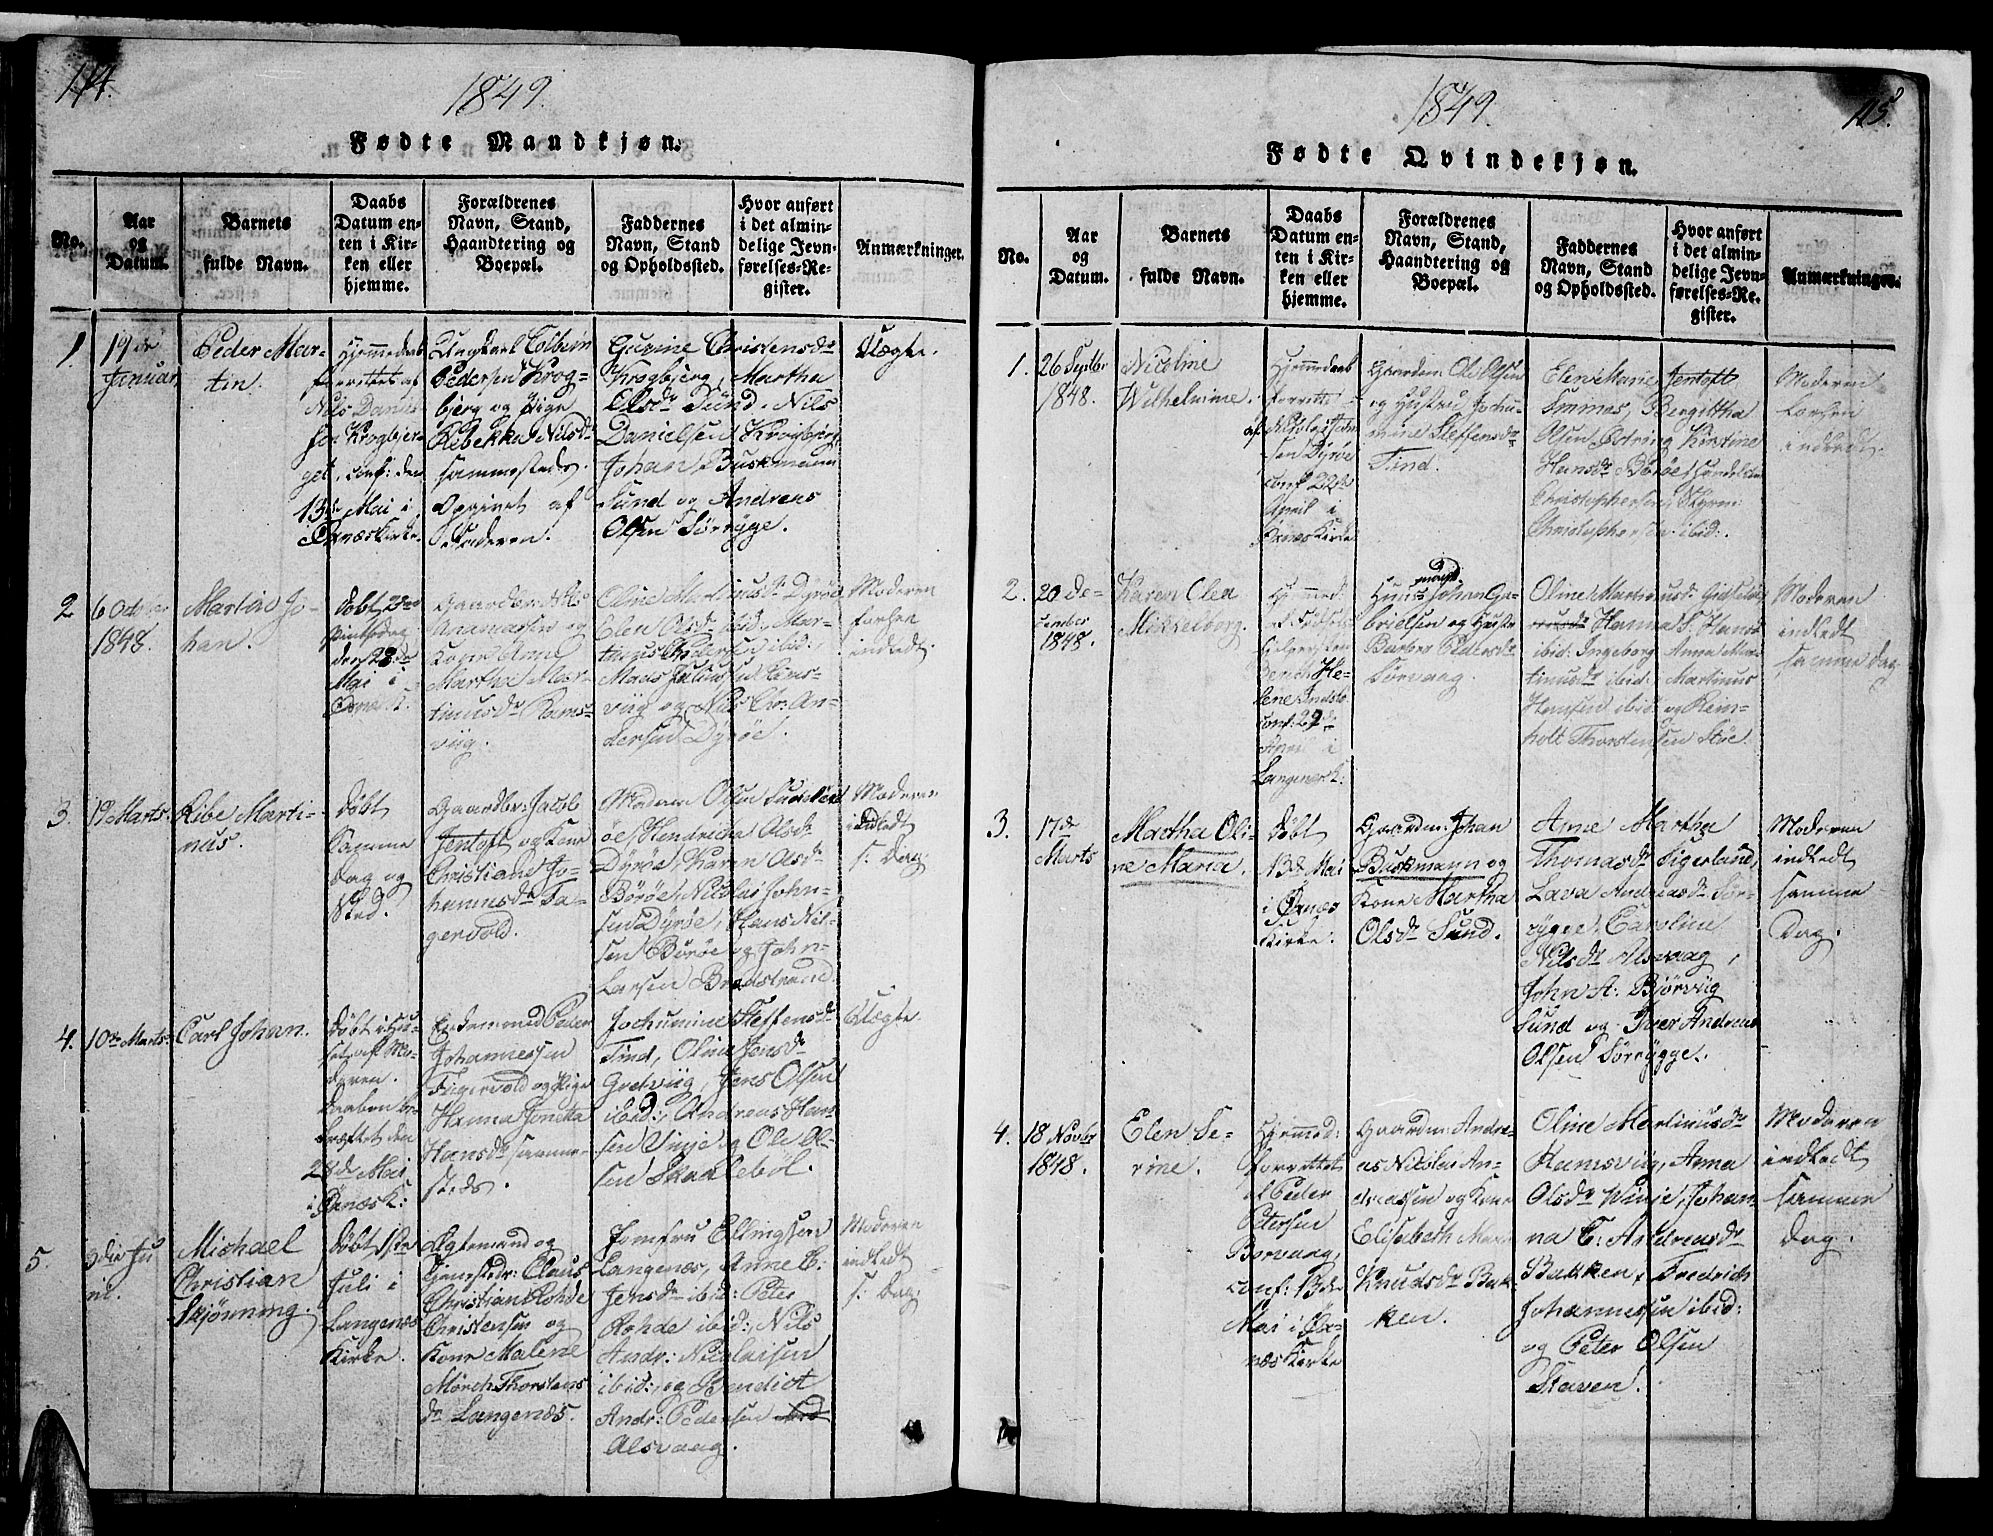 114.
1849.
Fødte Mandkjøn.
No.
Aar
og
Datum.
Barnets
fulde Navn.
Daabs
Datum en-
ten i Kir-
ken eller
hjemme.
Forældrenes
Navn, Stand,
Haandtering og
Boepæl.
Faddernes
Navn, Stand
og Opholdssted.
Hvor anført
i det almin-
delige Jevn-
førelses-Re-
gister.
Anmærkninger.
1.
19de
Januar
Peder Mar-
tin.
Hjemmedaab
forrettet af
Nils Daniel
sen Krogbjer-
get, conf: den
13de Mai i
Øxnæs Kirke.
Ungkarl Colbein
Pedersen Krog-
bjerg og Pige
Rebekka Nilsdr
sammesteds.
Opgivet af
Faderen.
Gurine Christensdr
Krogbjerg, Martha
Olsdr Sund, Nils
Danielsen Krogbjerg,
Johan Buskmann
Sund og Andreas
Olsen Sørrygge.
Uægte.
2
6 October
1848.
Martin Jo-
han.
Døbt 2den
Pintsedag
den 28de
Mai i
Øxnæs K.
Gaardbr: Nils
og
Kone Anne
Martha Mar-
tinusdr Rams-
viig.
Oline Martinusdr Dyrøe
Elen Olsdr ibid:, Mar-
tinus Pedersen ibid:,
Rams-
viig og Nils Chr: An-
dersen Dyrøe.
Moderen
forhen
indledt.
3.
19 Marts.
Ribe Marti-
nus.
Døbt
Samme
Dag og
Sted.
Gaardbr: Jacob
Jentoft og Kone
Christiane Jo-
hannesdr Fa-
gervold.
Madam Olsen
Hendricha Olsdr
Dyrøe, Karen Olsdr
Børøe, Nicolai John-
sen Dyrøe, Hans Nil-
sen Børøe og John
Larsen Bredstrand.
Moderen
indledt
s: Dag.
4.
10de Marts
Carl Johan.
Døbt i Hu-
set af Mo-
deren.
Daaben be-
kræftet den
28de Mai
i Øxnæs K:
Enkemand Peder
Johannessen
Fagervold og Pige
Hanna Jenetta
Hansdr samme-
steds.
Jochumine Steffensdr
Tind, Oline Jensdr
Grotviig, Jens Olsen
ibid:, Andreas Han-
sen Vinje og Ole Ol-
sen Skaklebøl.
Uægte.
5.
3die Ju-
ni.
Michael
Christian
Skjønning.
Døbt 1ste
Juli i
Langenæs
Kirke.
Ægtemand og
Tjenestedr: Claus
Christian Rohde
Christensen og
Kone Malene
Mørch Thorstens
dr Langenæs.
Jomfru Ellingsen
Langenæs, Anne B:
Jensdr ibid: Peter
Rohde ibid:, Nils
Andr: Nicolaisen
ibid:, og Benedict
Andr: Pedersen
Alsvaag.
Moderen
indledt
s: Dag.
115.
1849.
Fødte Qvindekjøn.
No.
Aar
og
Datum.
Barnets
fulde Navn.
Daabs
Datum en-
ten i Kir-
ken eller
hjemme.
Forældrenes
Navn, Stand,
Haandtering og
Boepæl.
Faddernes
Navn, Stand
og Opholdssted.
Hvor anført
i det almin-
delige Jevn-
førelses-Re-
gister.
Anmærkninger.
1.
26 Septbr
1848.
Nicoline
Wilhelmine.
Hjemmedaab
forrettet
af
sen Dyrøe
conf 22de
April i
Øxnæs Kirke
Gaardm: Ole Olsen
og Hustru Jochu-
mine Steffensdr
Tind.
Elen Marie Jentoft
Smines, Bergittha
Olsen Kirstine
Hansdr Børøe,
Christophersen
Christophersen ibid:.
Moderen
forhen
indledt.
2.
20 De-
cember
1848.
Karen Elea
Mikkelborg.
Hjemmed:
af
Bendt He-
lene
conf: 29de
April i
Langenæs K:
Huusmand Johan Ga-
brielsen og Hustru
Barbro Pedersdr
Sørvaag.
Oline Martinusdr
Hanna S. Hans
ibid: Ingeborg Anna Mar-
tinusdr ibid: Martinus
Hansen ibid: og Rein-
holt Thorstensen Støe.
Moderen
indledt
samme Dag
3.
17de
Marts
Martha Oli-
ne Maria.
Døbt
13de Mai
i Øxnæs
Kirke.
Gaardm: Johan
Buskmann og
Kone Martha
Olsdr Sund.
Anne Martha
Thomasdr Tigerland,
Lava Andreasdr Sør-
rygge, Caroline
Nilsdr Alsvaag,
John A: Bjørviig
Sund og Iver Andreas
Olsen Sørrygge.
Moderen
indledt
samme
Dag.
4.
18 Novbr
1848.
Elen Se-
rine.
Hjemmed:
forrettet
af Peder
Petersen
Borvaag,
conf: 13de
Mai i Øx-
næs Kirke
Gaardm: Andre-
as Nicolai An-
dreassen og Kone
Elisabeth Maria
Knudsdr Bak-
ken.
Oline Martinusdr
Ramsviig, Anna
Olsdr Winje, Johan-
na E: Andreasdr
Bakken, Fredrich
Johannessen ibid:
og Peter Olsen
Staven.
Moderen
indledt
samme
Dag.